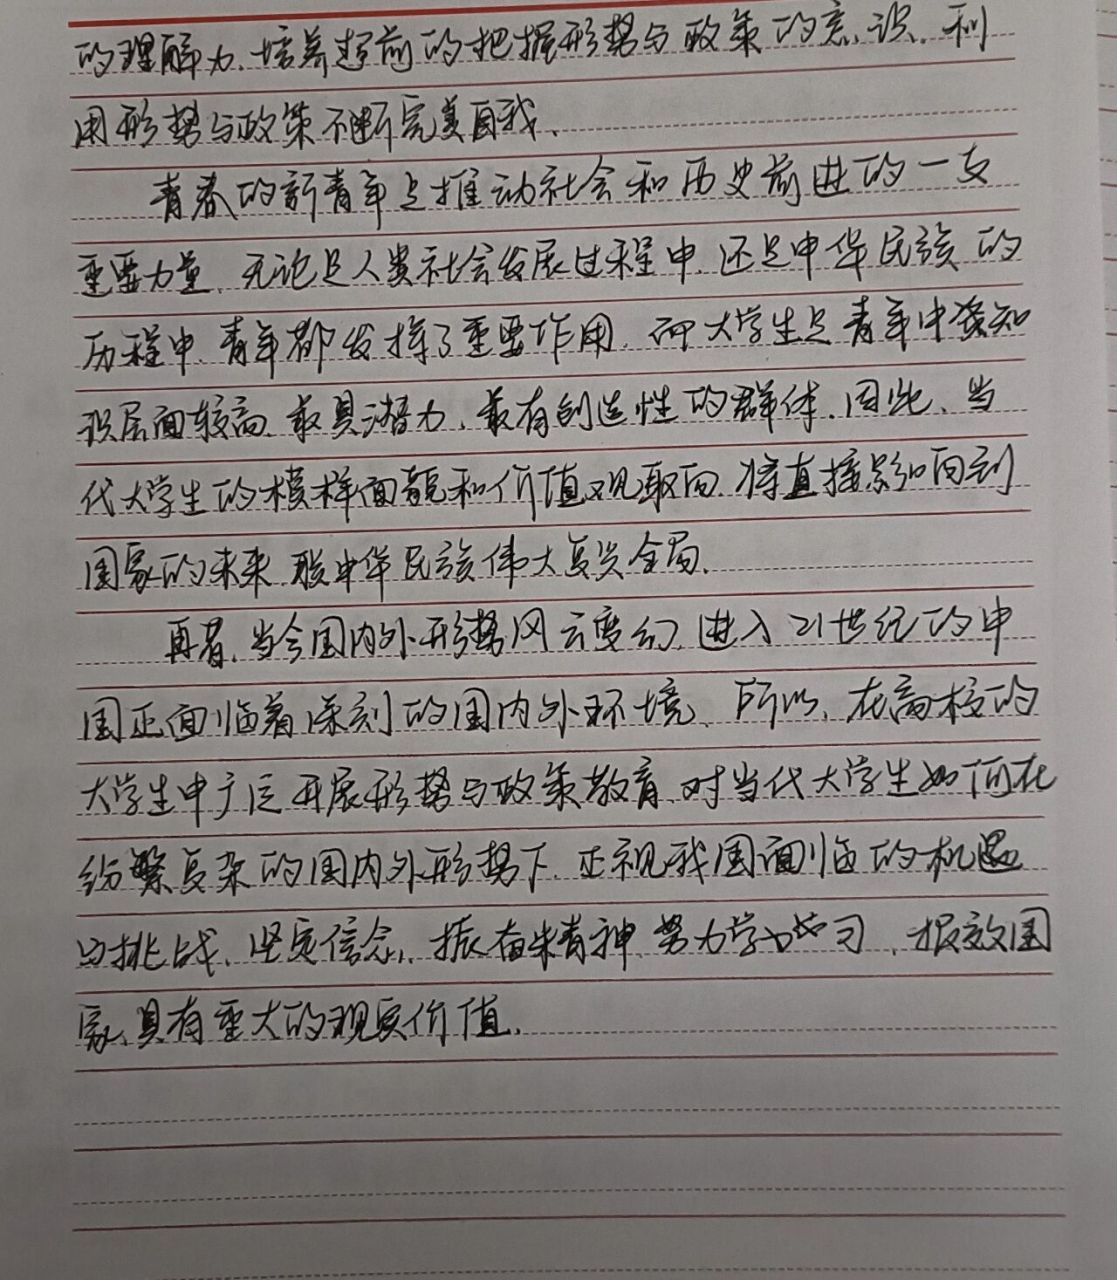 的理解力、培养超前的把握形势与政策的意识,利
用形势与政策不断完美自我、
青春的新青年是推动社会和历史前进的一支
重要力量,无论是人类社会发展过程中,还是中华民族的
历程中,青年都发挥了重要作用,而大学生是青年中知
识层面较高,最具潜力,最有创造性的群体,因此、当
代大学生的模样面貌和价值观取向,将直接影响到
国家的未来 中华民族伟大复兴全局、
再者,当今国内外形势风云变幻,进入21世纪的中
国正面临着深刻的国内外环境、所以,在高校的
大学生中广泛开展形势与政策教育,对当代大学生如何在
纷繁复杂的国内外形势下,正视我国面临的机遇
与挑战、坚定信念,振奋精神,努力学习,报效国
家、具有重大的现实价值,